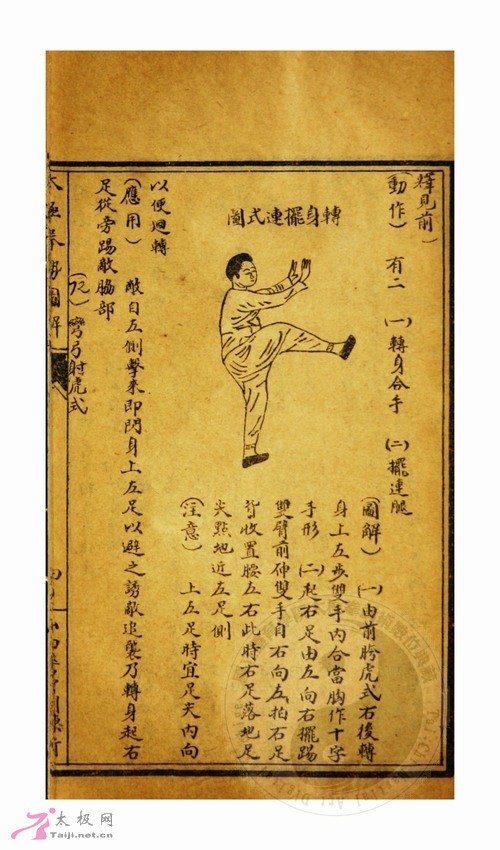 釋見前)
(動作) 有二 (一)轉身合手 (二)擺連腿
轉身擺連式圖
(圖解) (一)由前胯虎式右後轉
身上左步雙手內合當胸作十字
手形 (二)起右足由左向右擺踢
雙臂前伸雙手自右向左拍右足
背收置腰左右此時右足落地足
尖點地近左足側
(注意) 上左足時宜足尖內向
以便迴轉
(應用) 敵自左側擊來即閃身上左足以避之誘敵追襲乃轉身起右
足從旁踢敵脇部
彎弓射虎式
太極拳勢圖解
太极网
Taiji.net.cn